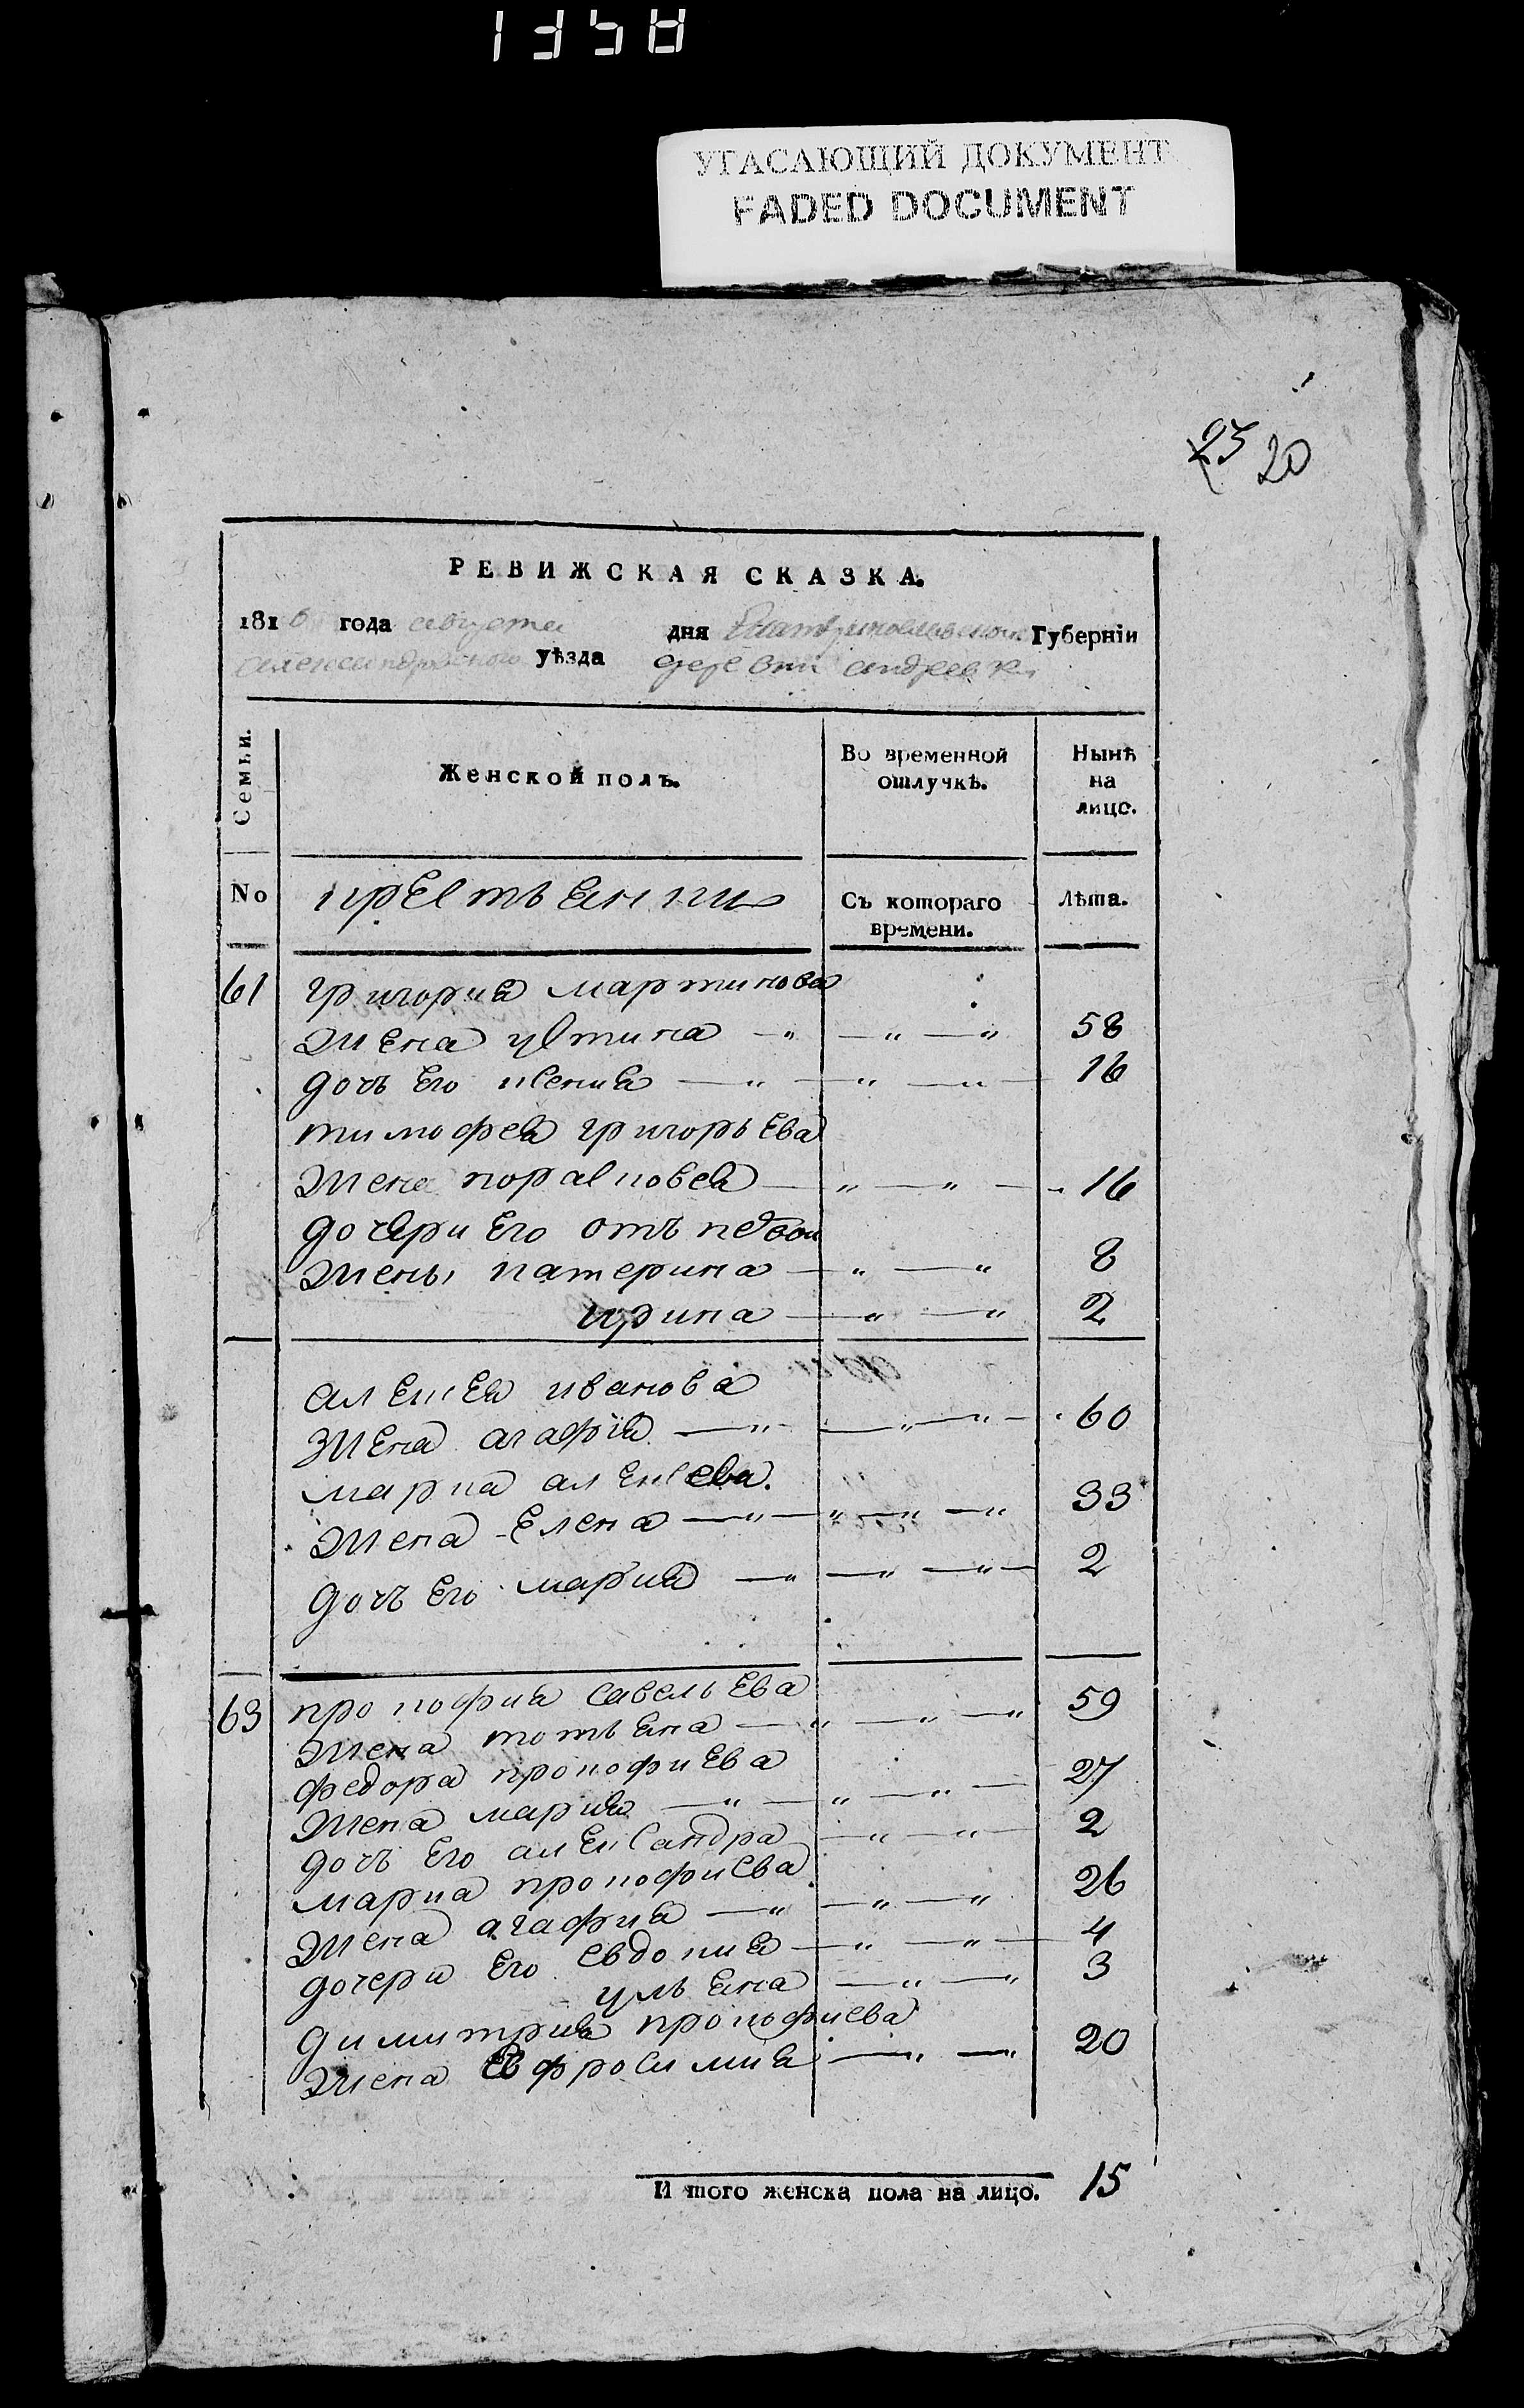 1358
УГАСАЮЩИЙ ДОКУМЕНТ
FADED DOCUMENT
25 20
РЕВИЖСКАЯ СКАЗКА.
1816 года августа дня Екатеринославской Губернїи
александровского уѣзда деревни андреевки
Семьи.
Женской полъ.
Во временной отлучкѣ.
Нынѣ на лицо.
No
крестьянки
Съ котораго времени.
Лѣта.
61 григория мартинова
жена устина — " — " — " 58
дочь Его ксения — " — " — " — 16
тимофея григорьЕва
жена порасковея — " — " — 16
дочери Его отъ первой
жены катерина — " — " 8
ирина — " — " 2
алЕксЕя иванова
жЕна агафїя — " — " — " — 60
марка алЕксева.
жена Елена — " — " — " — " 33
дочь Его мария — " — " — " — 2
63 прокофия савельЕва
жена тотьяна — " — " — " 59
федора прокофиЕва
жена мария — " — " — " — 27
дочь Его алЕксандра — " — " — 2
марка прокофиева
жена агафия — " — " — " 26
дочери Его Евдокия — " — " — 4
ульяна — " — " 3
димитрия прокофиева
жена Евфросимия — " — " 20
И того женска пола на лицо. 15